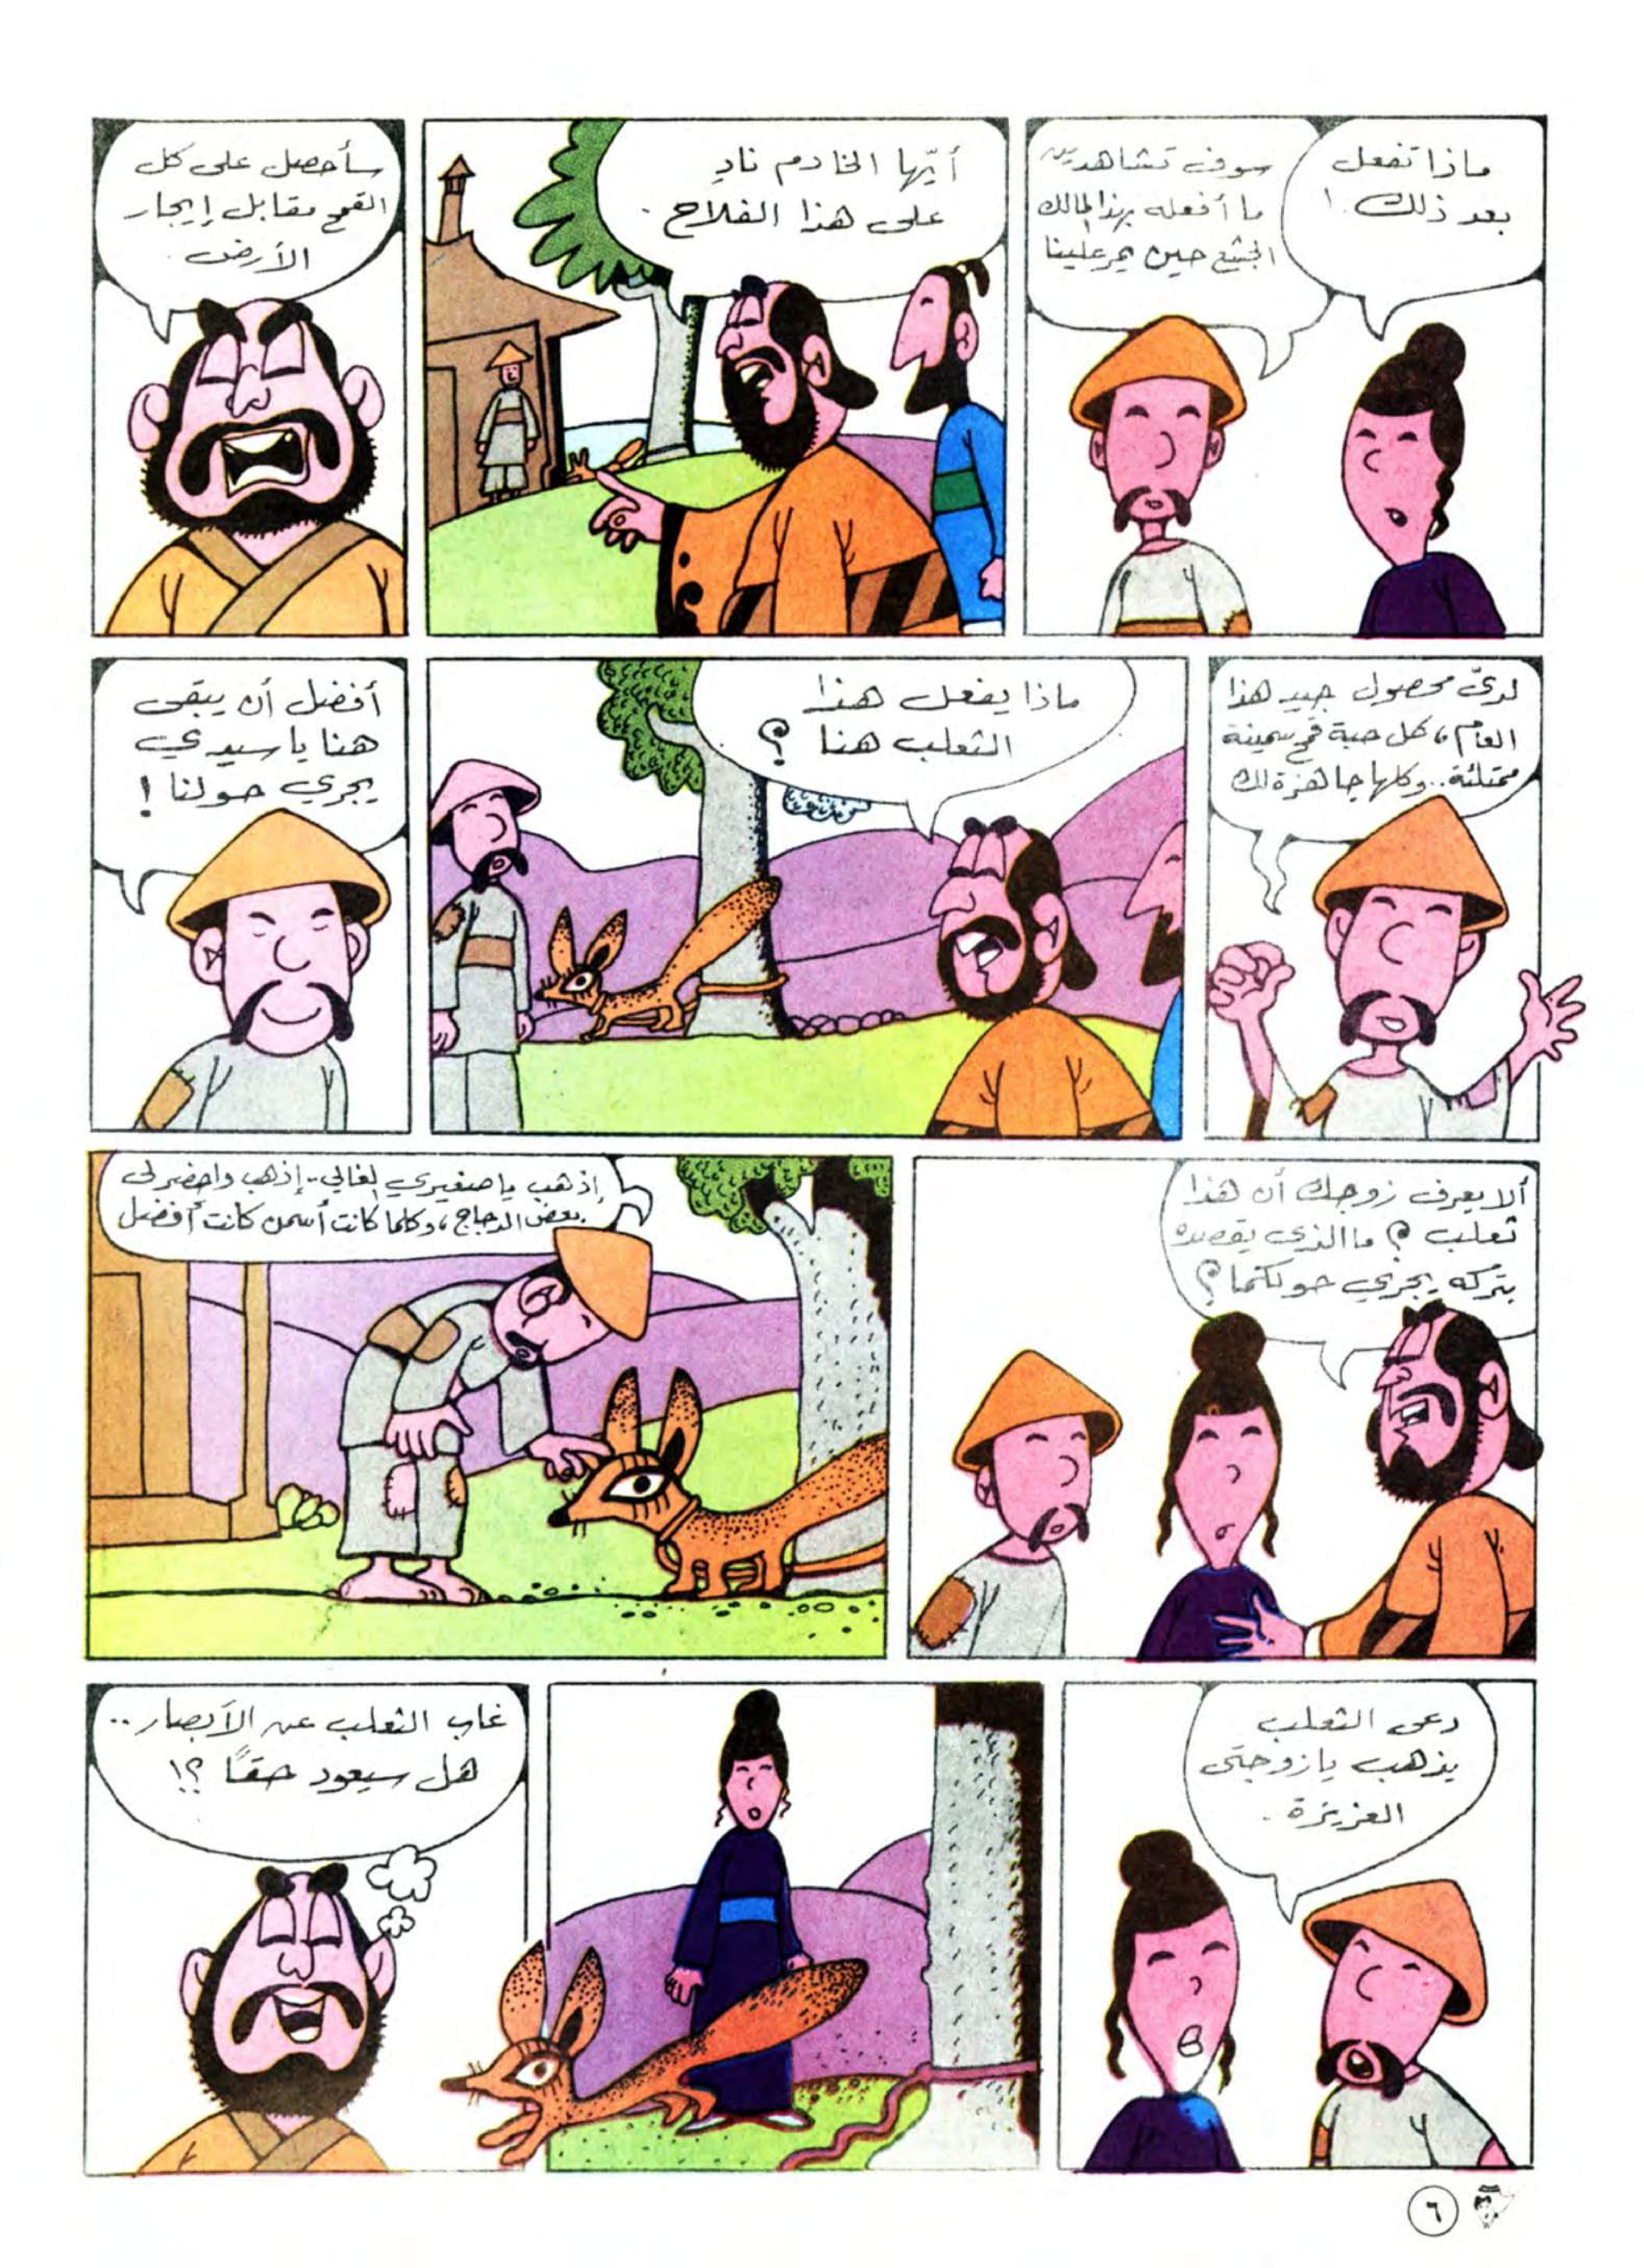 ماذا تفعل
بعد ذلك !
سوف تشاهدين
ما أفعله بهذا المالك
الجشع حين يمر علينا
أيّها الخادم نادِ
على هذا الفلاح .
سأحصل على كل
القمح مقابل إيجار
الأرض .
لديّ محصول جيد هذا
العام ، كل حبة قمح سمينة
ممتلئة .. وكلها جاهزة لك
ماذا يفعل هذا
الثعلب هنا ؟
أفضل أن يبقى
هنا يا سيدي
يجري حولنا !
ألا يعرف زوجك أن هذا
ثعلب ؟ ما الذي يقصده
بتركه يجري حولكما ؟
إذهب يا صغيري الغالي .. إذهب واحضر لى
بعض الدجاج ، وكلما كانت أسمن كانت أفضل
دعى الثعلب
يذهب يا زوجتى
العزيزة .
غاب الثعلب عن الأبصار ..
هل سيعود حقاً ؟!
٦